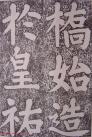 橋始造
於皇祐